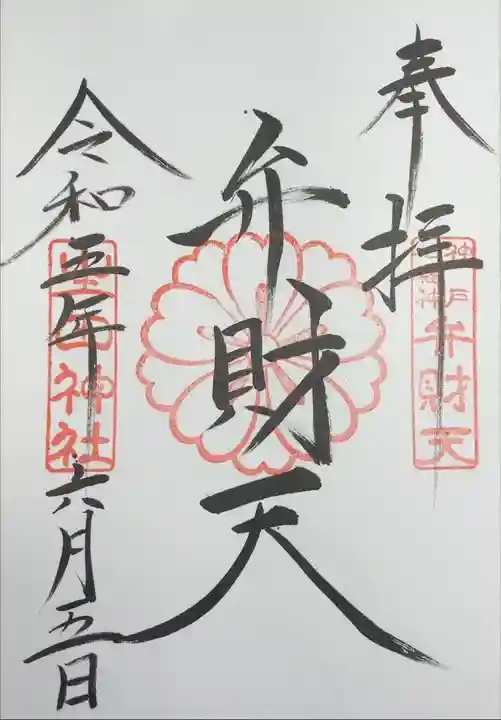 奉拝
神戸
弁財天
弁財天
令和五年六月五日
生田神社